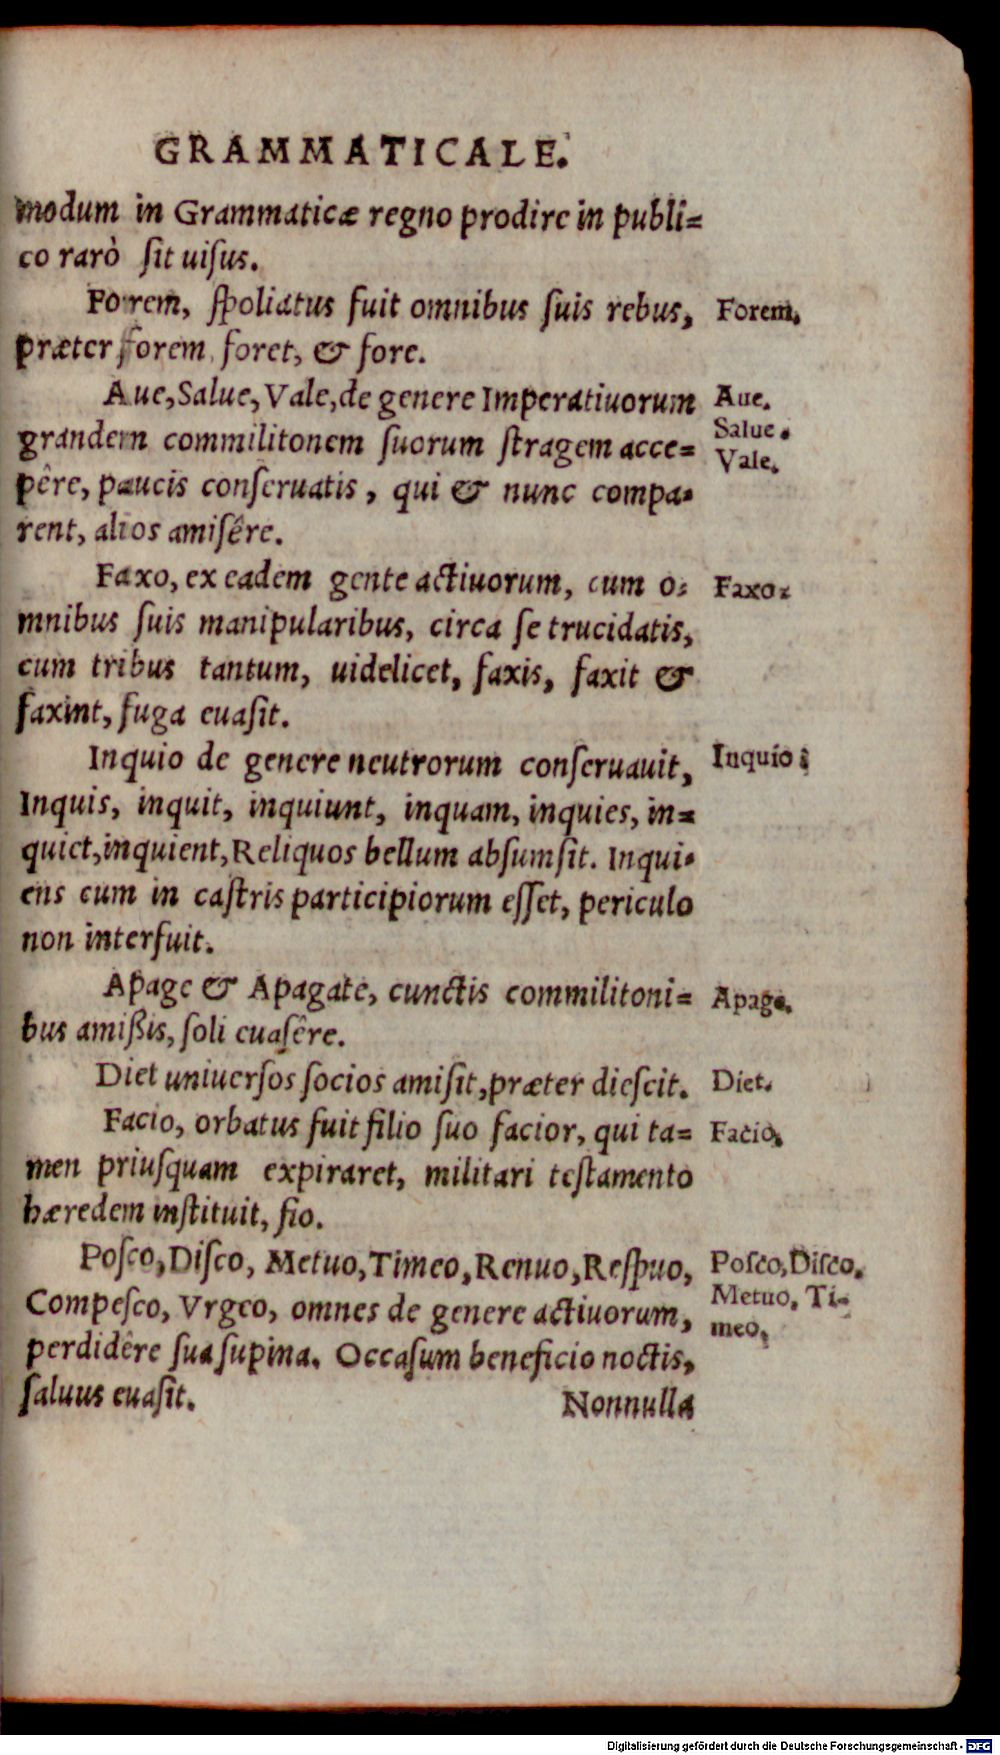 GRAMMATICALE.
modum in Grammaticæ regno prodire in publi=
co rarò ſit uiſus.
Forem, ſpoliatus fuit omnibus ſuis rebus,
Forem.
præter forem, foret, & fore.
Aue, Salue, Vale, de genere Imperatiuorum
Aue.
grandem commilitonem ſuorum ſtragem acce=
Salue.
Vale.
pêre, paucis conſeruatis, qui & nunc compa=
rent, alios amiſêre.
Faxo, ex eadem gente actiuorum, cum o=
Faxo.
mnibus ſuis manipularibus, circa ſe trucidatis,
cum tribus tantum, uidelicet, faxis, faxit &
faxint, fuga euaſit.
Inquio de genere neutrorum conſeruauit,
Inquio.
Inquis, inquit, inquiunt, inquam, inquies, in=
quiet, inquient, Reliquos bellum abſumſit. Inqui=
ens cum in caſtris participiorum eſſet, periculo
non interfuit.
Apage & Apagate, cunctis commilitoni=
Apage.
bus amißis, ſoli euaſêre.
Diet uniuerſos ſocios amiſit, præter dieſcit.
Diet.
Facio, orbatus fuit filio ſuo facior, qui ta=
Facio.
men priuſquam expiraret, militari teſtamento
hæredem inſtituit, fio.
Poſco, Diſco, Metuo, Timeo, Renuo, Reſpuo,
Poſco, Diſco.
Compeſco, Vrgeo, omnes de genere actiuorum,
Metuo. Ti=
meo.
perdidêre ſua ſupina. Occaſum beneficio noctis,
ſaluus euaſit.
Nonnulla
Digitalisierung gefördert durch die Deutsche Forschungsgemeinschaft - DFG